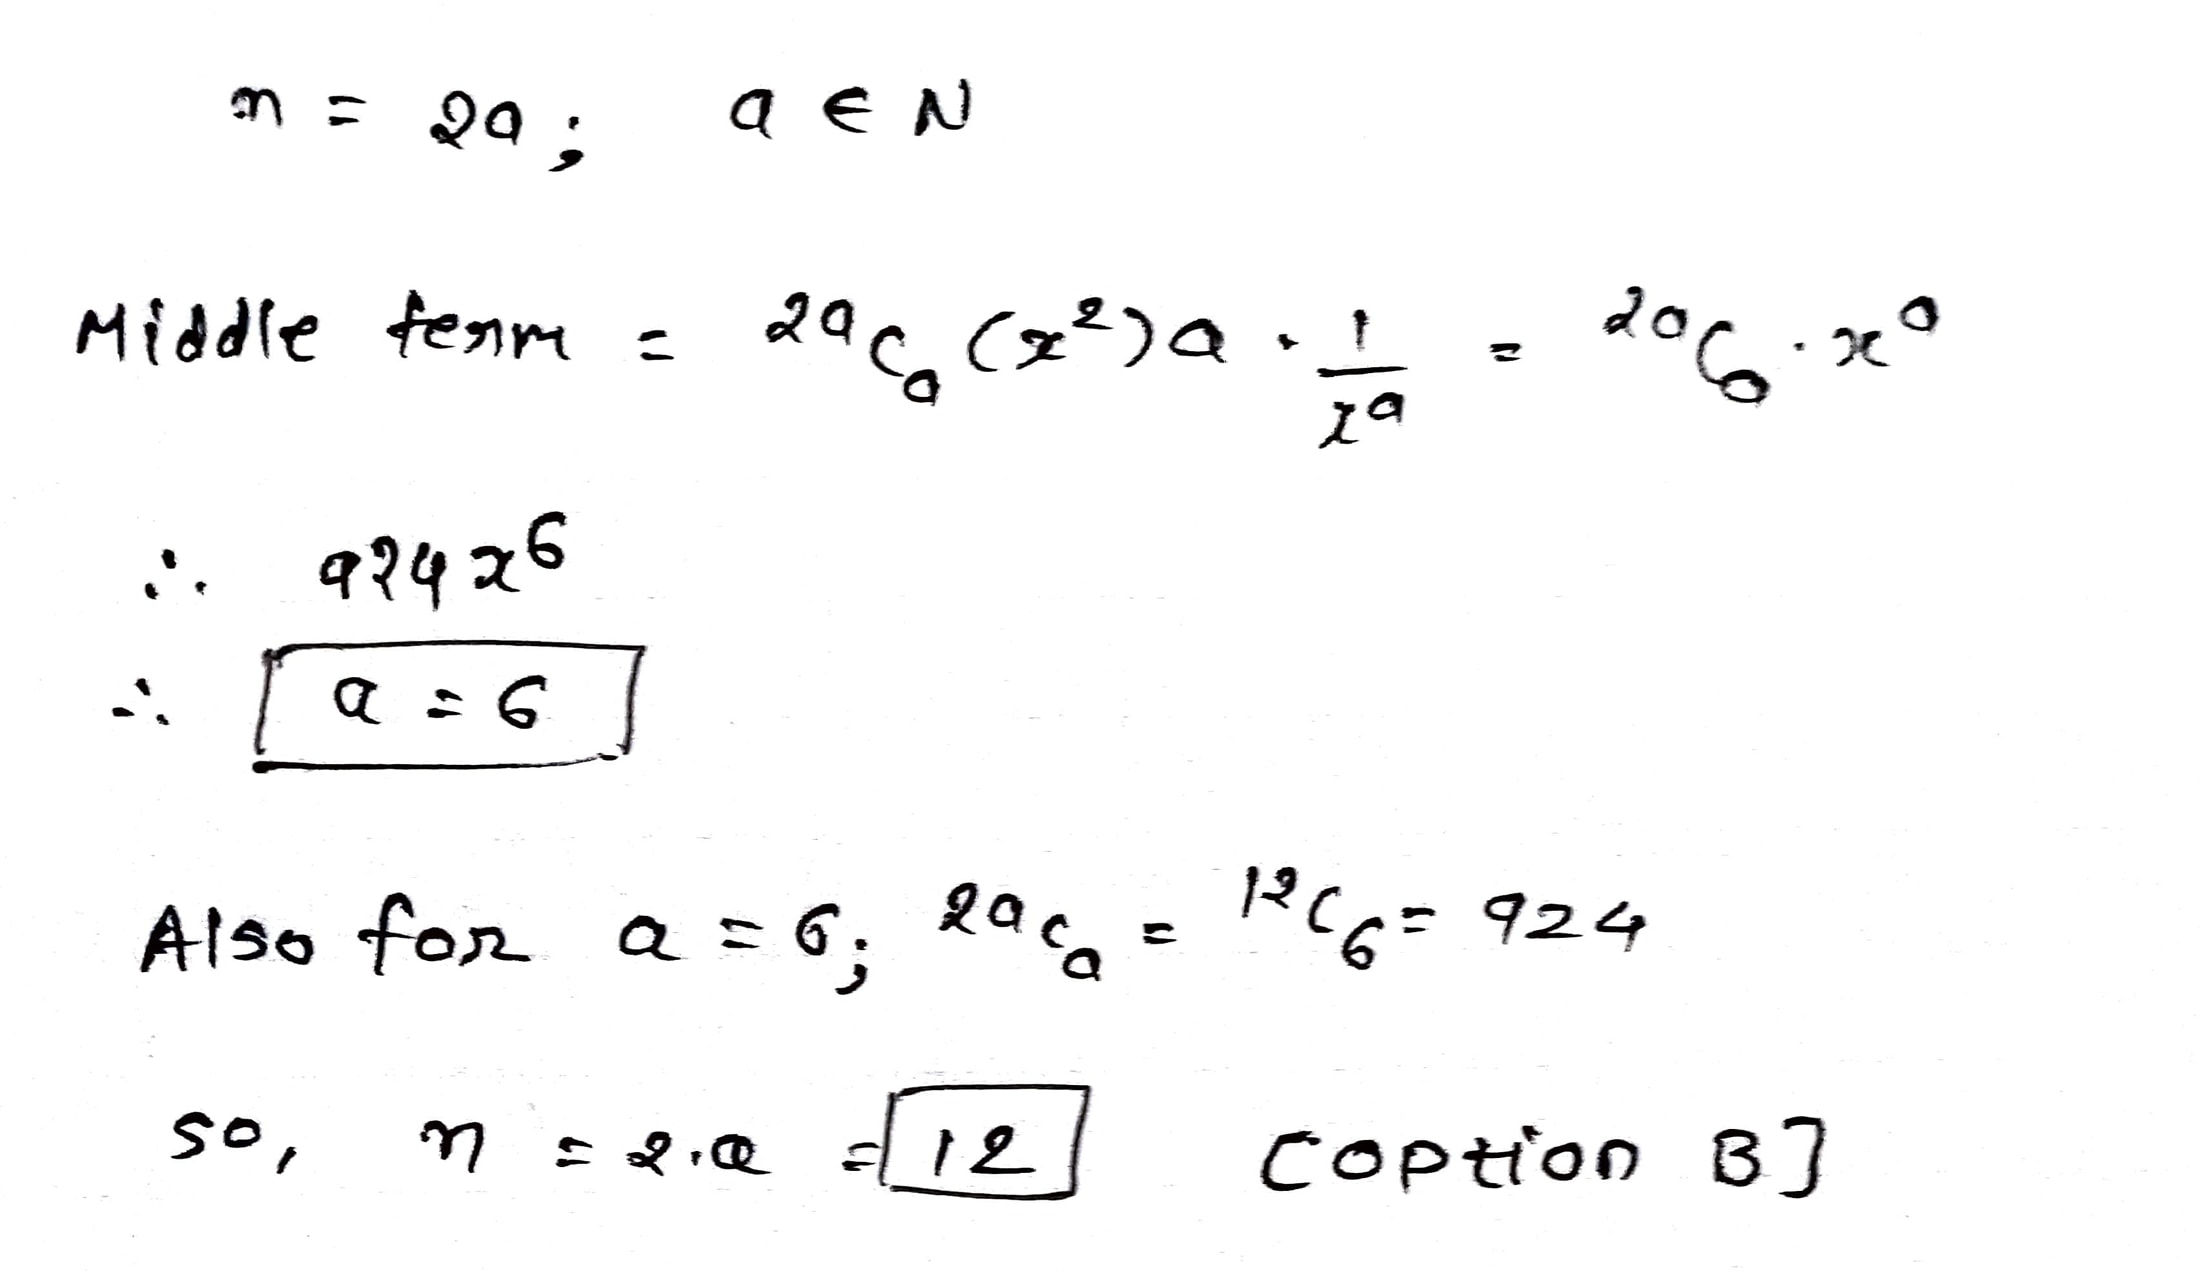 n = 2a; a ∈ N
Middle term = ²ᵃCₐ (x²)a · 1/xᵃ = ²ᵃCₐ · xᵃ
∴ 924x⁶
∴ a = 6
Also for a = 6; ²ᵃCₐ = ¹²C₆ = 924
so, n = 2.a = 12 [option B]